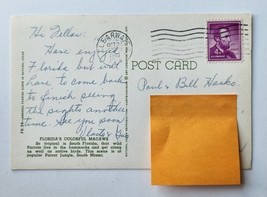 Hi Fellas.
Have enjoyed
Florida but will
have to come back
to finish seeing
the sights another
time. See you soon
CLEARWATER
POST CARD
Paul & Bill
FLORIDA'S COLORFUL MACAWS
So tropical is South Florida, that wild
Parrots live in the hammocks and get along
as well as native birds. This scene is at
popular Parrot Jungle, South Miami.